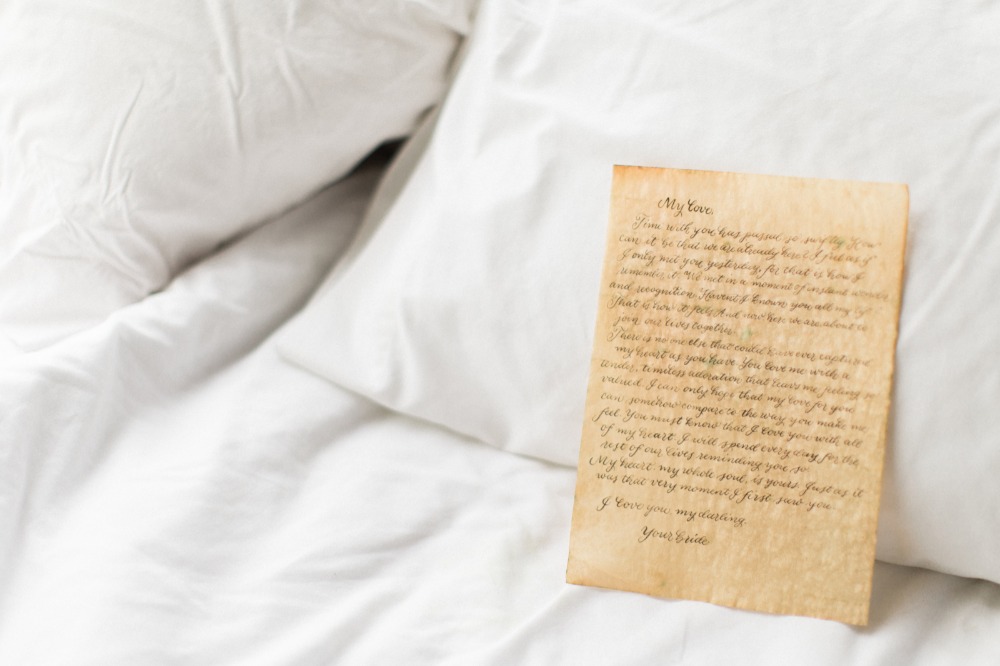 My Love,
Time with you has passed so swiftly. How
can it be that we are already here? I feel as if
I only met you yesterday, for that is how I
remember it. We met in a moment of instant wonder
and recognition. Haven't I known you all my life?
That is how it feels. And now here we are about to
join our lives together.
There is no one else that could have ever captured
my heart as you have. You love me with a
tender, timeless adoration that leaves me feeling so
valued. I can only hope that my love for you
can somehow compare to the way you make me
feel. You must know that I love you with all
of my heart. I will spend every day for the
rest of our lives reminding you so.
My heart, my whole soul, is yours. Just as it
was that very moment I first saw you.
I love you, my darling
Your Bride